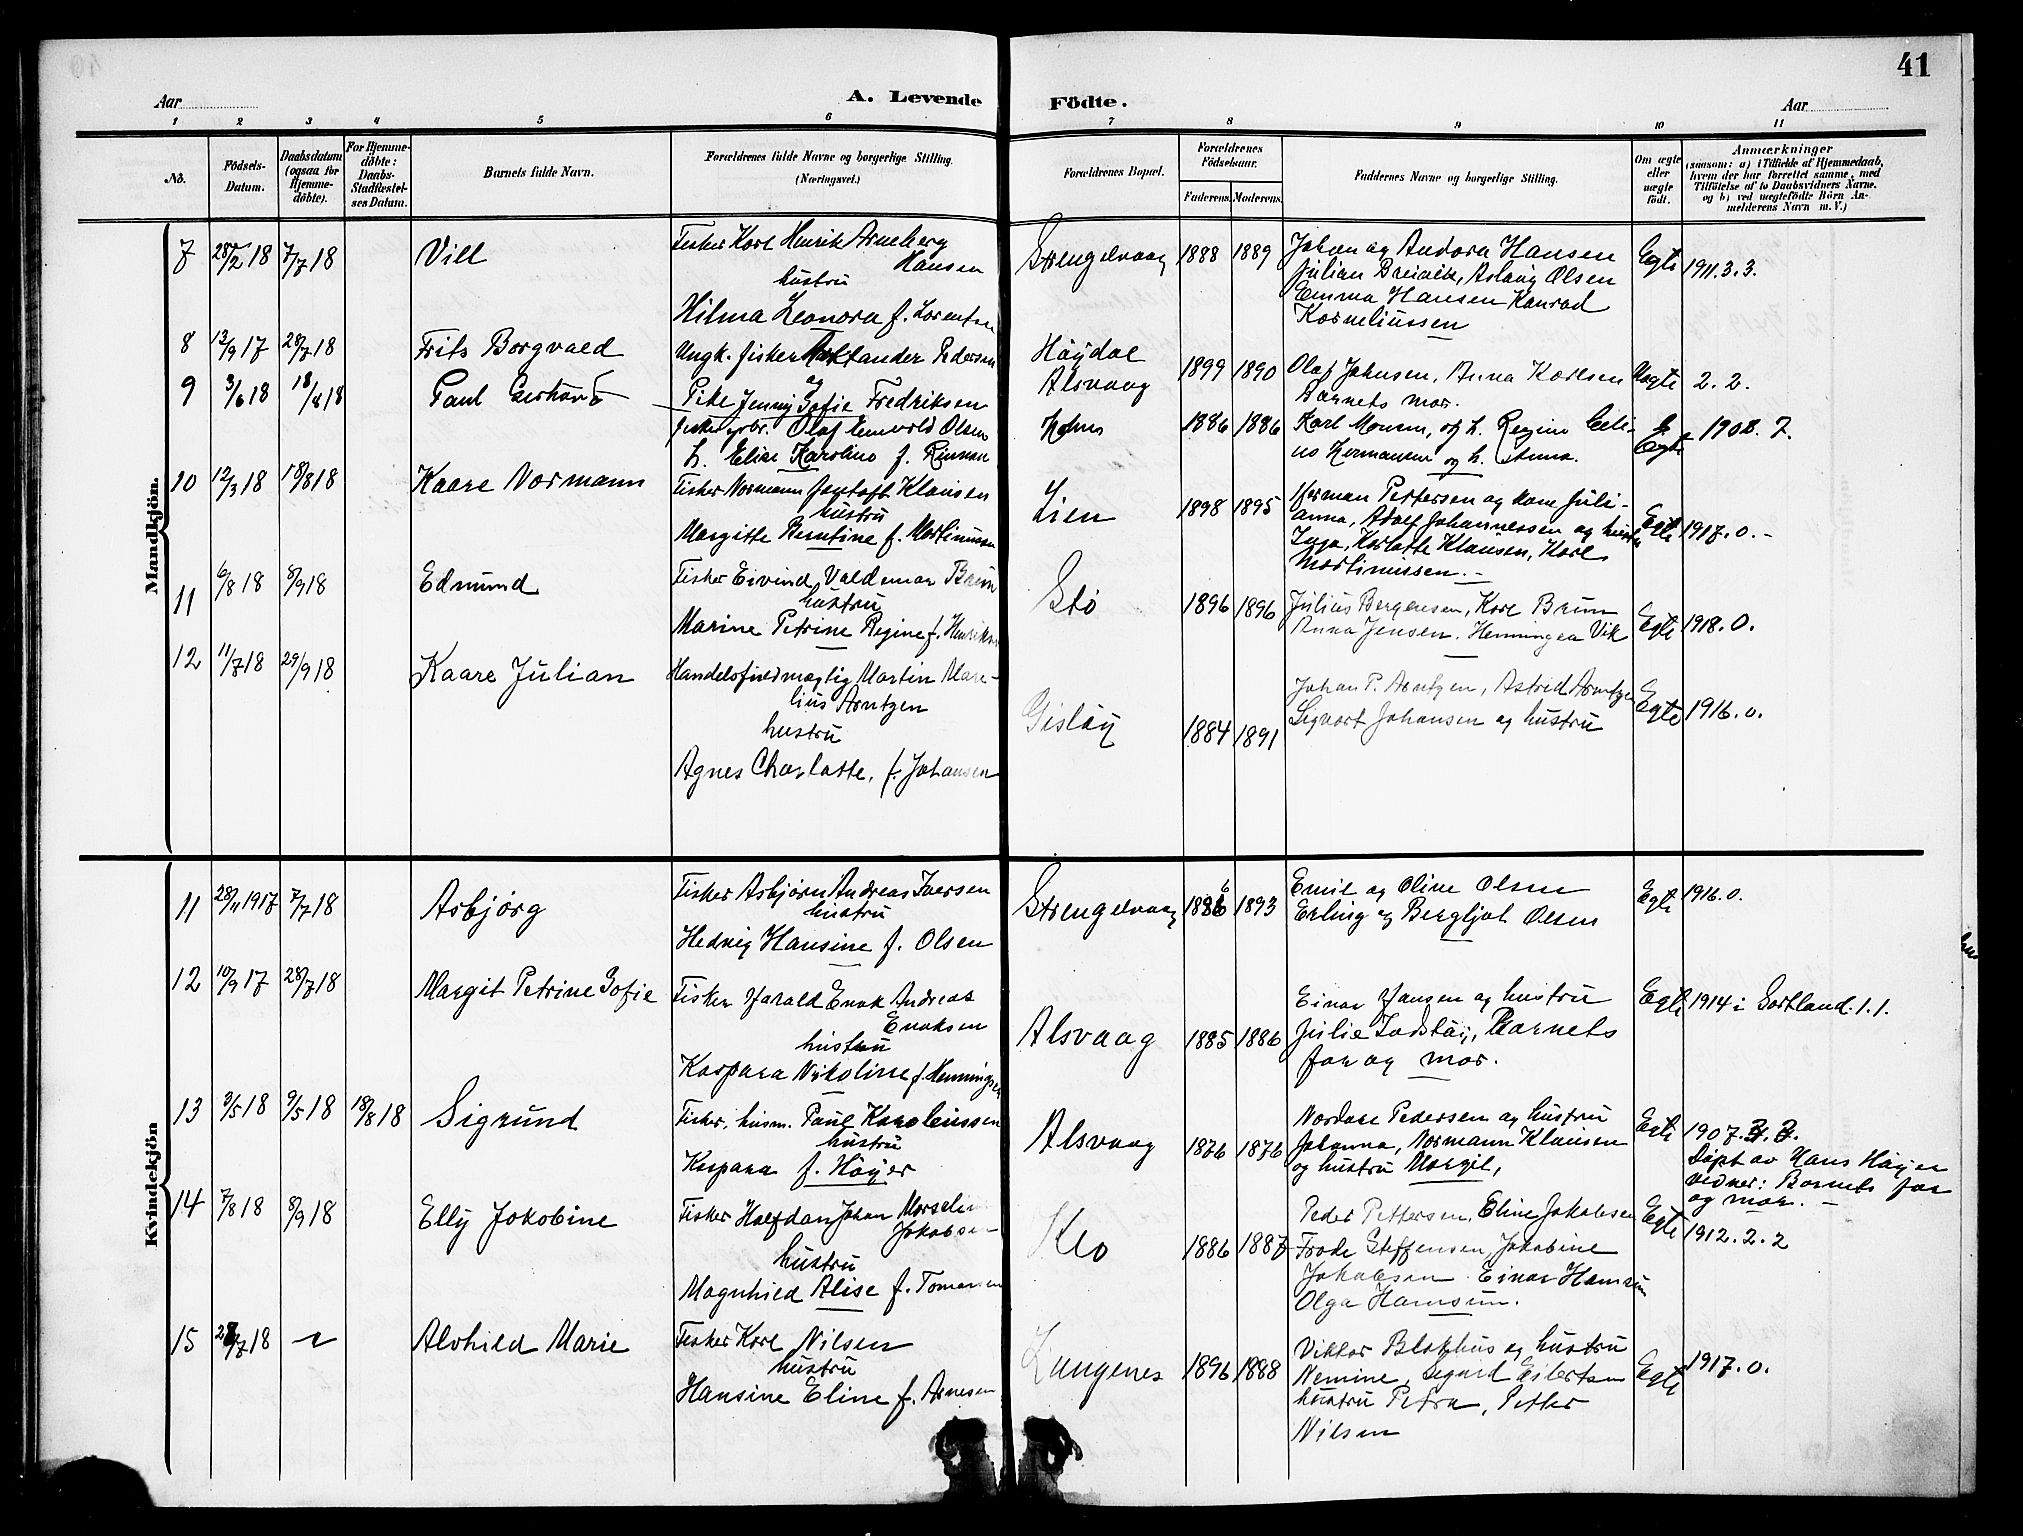 41
Aar
A. Levende Födte.
Aar
1 2 3 4 5 6 7 8 9 10 11
No.
Födsels-
Datum.
Daabsdatum
(ogsaa for
Hjemme-
döbte).
For Hjemme-
döbte:
Daabs-
Stadfæstel-
ses Datum.
Barnets fulde Navn.
Forældrenes fulde Navne og borgerlige Stilling.
(Næringsvei.)
Forældrenes Bopæl.
Forældrenes
Födselsaar.
Faderens.
Moderens.
Faddernes Navne og borgerlige Stilling.
Om ægte
eller
uægte
født.
Anmærkninger
(saasom: a) i Tilfælde af Hjemmedaab,
hvem der har forrettet samme, med
Tilföielse af to Daabsvidners Navne.
og b) ved uægtefödte Börn An-
melderens Navn m. V.)
Mandkjön.
7 28/2 18 7/7 18 Vill
Fisker Karl Henrik Arneberg
Hansen
hustru
Hilma Leonora f. Lorentsen
Strengelvaag 1888 1889
Johan og Andora Hansen
Julian Breivik, Aslaug Olsen
Emma Hansen Konrad
Korneliussen
Egte 1911.3.3.
8 12/9 17 28/7 18 Frits Borgvald
Ungk. fisker Pedersen
og
Pike Jenny Sofie Fredriksen
Høydal
Alsvaag 1899 1890
Olaf Johnsen, Anna Karlsen
Barnets mor.
Uegte 2.2.
9 3/6 18 18/8 18 Paul Gerhard
Olaf Olsen
h. Elise Karoline f. Rinnan
1886 1886
Karl Monsen, og h. Regine
Hermansen og h. Anna.
Egte 1908. 7.
10 12/3 18 18/8 18 Kaare Normann
Fisker Normann Jentoft Klausen
hustru
Margitte Berntine f. Martinussen
Lien 1898 1895
Herman Pettersen og kone Juli-
anna, Adolf Johannessen og hustru
Inga, Karlotte Klausen, Karl
Martinussen.-
Egte 1917.0.-
11 6/8 18 8/9 18 Edmund
Fisker Eivind Valdemar Brun
hustru
Marine Petrine Regine f. Henriksen
Stø 1896 1896
Julius Bergersen, Karl Brun
Anna Jensen, Henningea Vik
Egte 1918.0.
12 11/7 18 29/9 18 Kaare Julian
Handelsfuldmægtig Martin Mare-
lius Arntzen
hustru
Agnes Charlotte, f. Johansen
Gisløy 1884 1891
Johan P. Arntzen, Astrid Arntzen
Sigvart Johansen og hustru
Egte 1916.0.
Kvindekjön
11 28/11 1917 7/7 18 Asbjørg
Fisker Asbjørn Andreas Iversen
hustru
Hedvig Hansine f. Olsen
Strengelvaag 1886 1893
Emil og Oline Olsen
Erling og Bergljot Olsen
Egte 1916.0.
12 10/9 17 28/7 18 Margit Petrine Sofie
Fisker Harald Enok Andreas
Enoksen
hustru
Kaspara Nikoline f. Henningsen
Alsvaag 1885 1886
Einar Hansen og hustru
Julie, Barnets
far og mor.
Egte 1914 i Sortland.1.1.
13 3/5 18 9/5 18 18/8 18 Sigrund
Fisker, husm. Paul Karoliussen
hustru
Kaspara f. Høyer
Alsvaag 1876 1876
Nordare Pedersen og hustru
Johanna, Normann Klausen
og hustru Margit,
Egte 1907.
Døpt av Hans Høyer
vidner: Barnets far
og mor.-
14 7/8 18 8/9 18 Elly Jakobine
Fisker Halfdan Johan Marselius
Jakobsen
hustru
Magnhild Alise f. Tomassen
Klo 1886 1887
Peder Pettersen, Eline Jakobsen
Frode Steffensen, Jakobine
Jakobsen. Einar Hamsun
Olga Hamsun.
Egte 1912.2.2
15 18 Alvhild Marie
Fisker Karl Nilsen
hustru
Hansine Eline f. Arnesen
Langenes 1896 1888
Viktor Blokhus og hustru
Nemine, Sigurd Eilertsen
hustru Petra, Petter
Nilsen
Egte 1917.0.